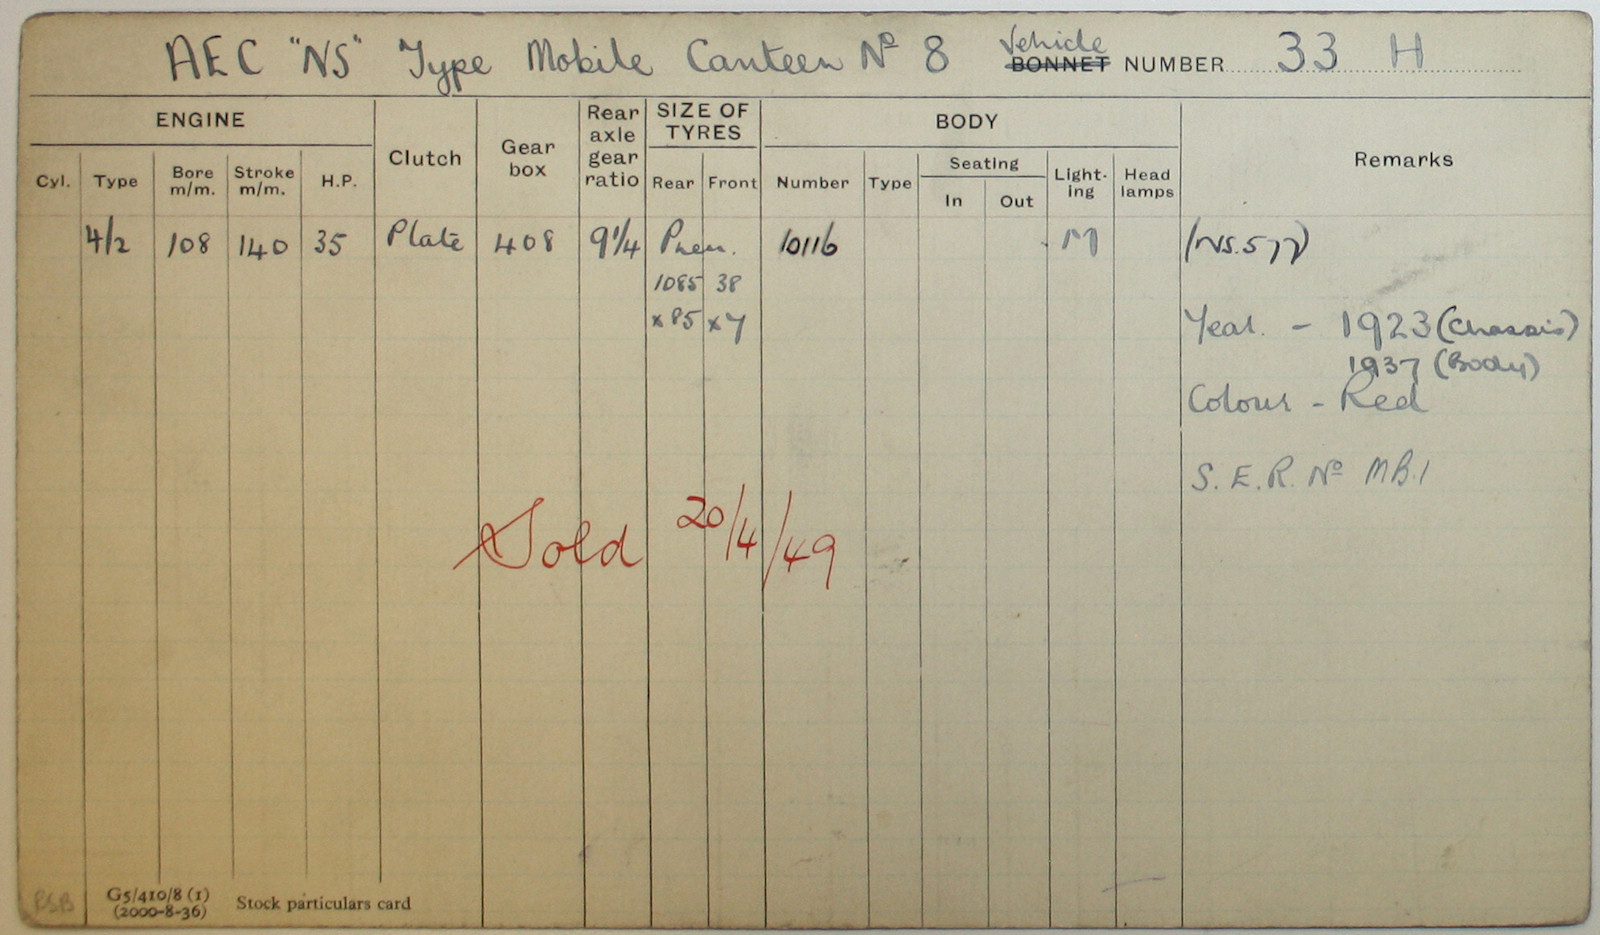 AEC "NS" Type Mobile Canteen Nº 8 Vehicle BONNET NUMBER 33 H
ENGINE Clutch Gear box Rear axle gear ratio SIZE OF TYRES BODY Remarks
Cyl. Type Bore m/m. Stroke m/m. H.P. Rear Front Number Type Seating In Out Light-ing Head lamps
4/2 108 140 35 Plate 408 9¼ Pneu. 10116 M (NS.577)
1085 38
x 85 x 7
Year. - 1923 (Chassis)
1937 (Body)
Colour - Red
S.E.R. Nº MB.1
Sold 20/4/49
RSB G5/410/8 (1)
(2000-8-36) Stock particulars card